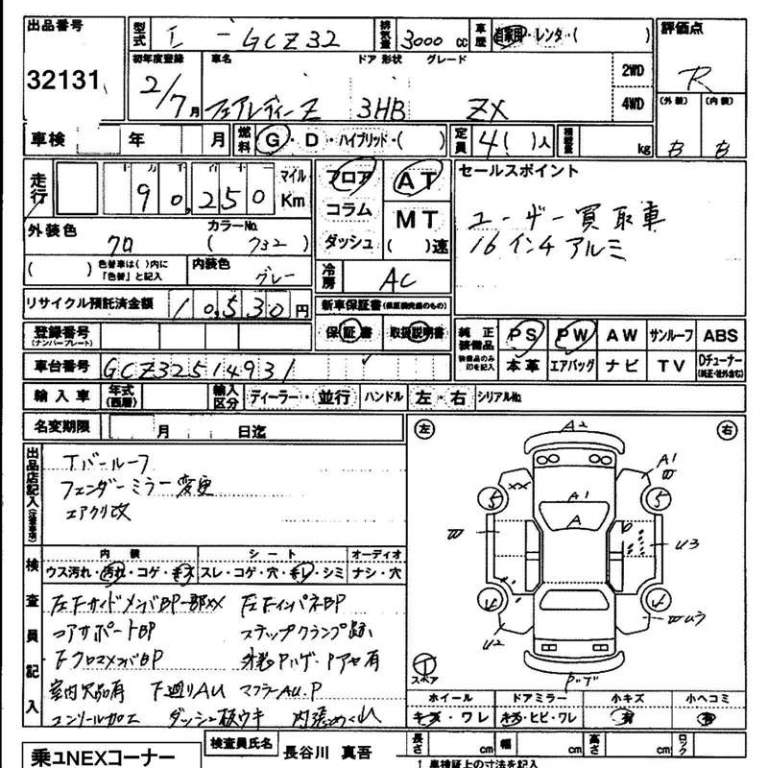 出品番号
32131
型式 E - GCZ32
排気量 3000 cc
車歴 自家用・レンタ・( )
評価点 R
初年度登録 2/7月
車名 ドア 形状 グレード
フェアレディーZ 3HB ZX
2WD
4WD
(外装) (内装)
B B
車検 年 月
燃料 G・D・ハイブリッド・( )
定員 4( )人
積載量 kg
走行 十万 万 千 百 十 一
90,250 マイル Km
フロア
コラム
ダッシュ
AT
MT
( )速
セールスポイント
ユーザー買取車
16インチアルミ
外装色 クロ
カラーNo. (732)
( ) 色替車は( )内に「色替」と記入
内装色 グレー
冷房 AC
リサイクル預託済金額 10,530 円
新車保証書(保証継承のもの)
保証書 取扱説明書
登録番号
(ナンバープレート)
純正装備品
装備品のみ印を記入
PS PW AW サンルーフ ABS
本革 エアバッグ ナビ TV Dチューナー
車台番号 GCZ32514931
輸入車 年式(西暦) 輸入区分 ディーラー・並行 ハンドル 左・右 シリアルNo.
名変期限 月 日迄
左 右
出品店記入(注意事項)
Tバールーフ
フェンダーミラー変更
エアクリ改
A2
A1
W
XX
5
5
A1
A
W
U3
U2
W U3
スペア
検査員記入
内装 シート オーディオ
ウス汚れ・汚れ・コゲ・キズ スレ・コゲ・穴・キレ・シミ ナシ・穴
左FサイドメンバBP一部XX 左FインパネBP
コアサポートBP ステップクランプ跡
FクロスメンバBP
室内欠品有 下廻りAU マフラーAU.P
コンソール加工 ダッシュ板ウキ 内張めくれ
ホイール ドアミラー 小キズ 小ヘコミ
キズ・ワレ キズ・ヒビ・ワレ 有 有
乗ユNEXコーナー
検査員氏名 長谷川 真吾
長さ cm 幅 cm 高さ cm ロック
↑車検証上の寸法を記入